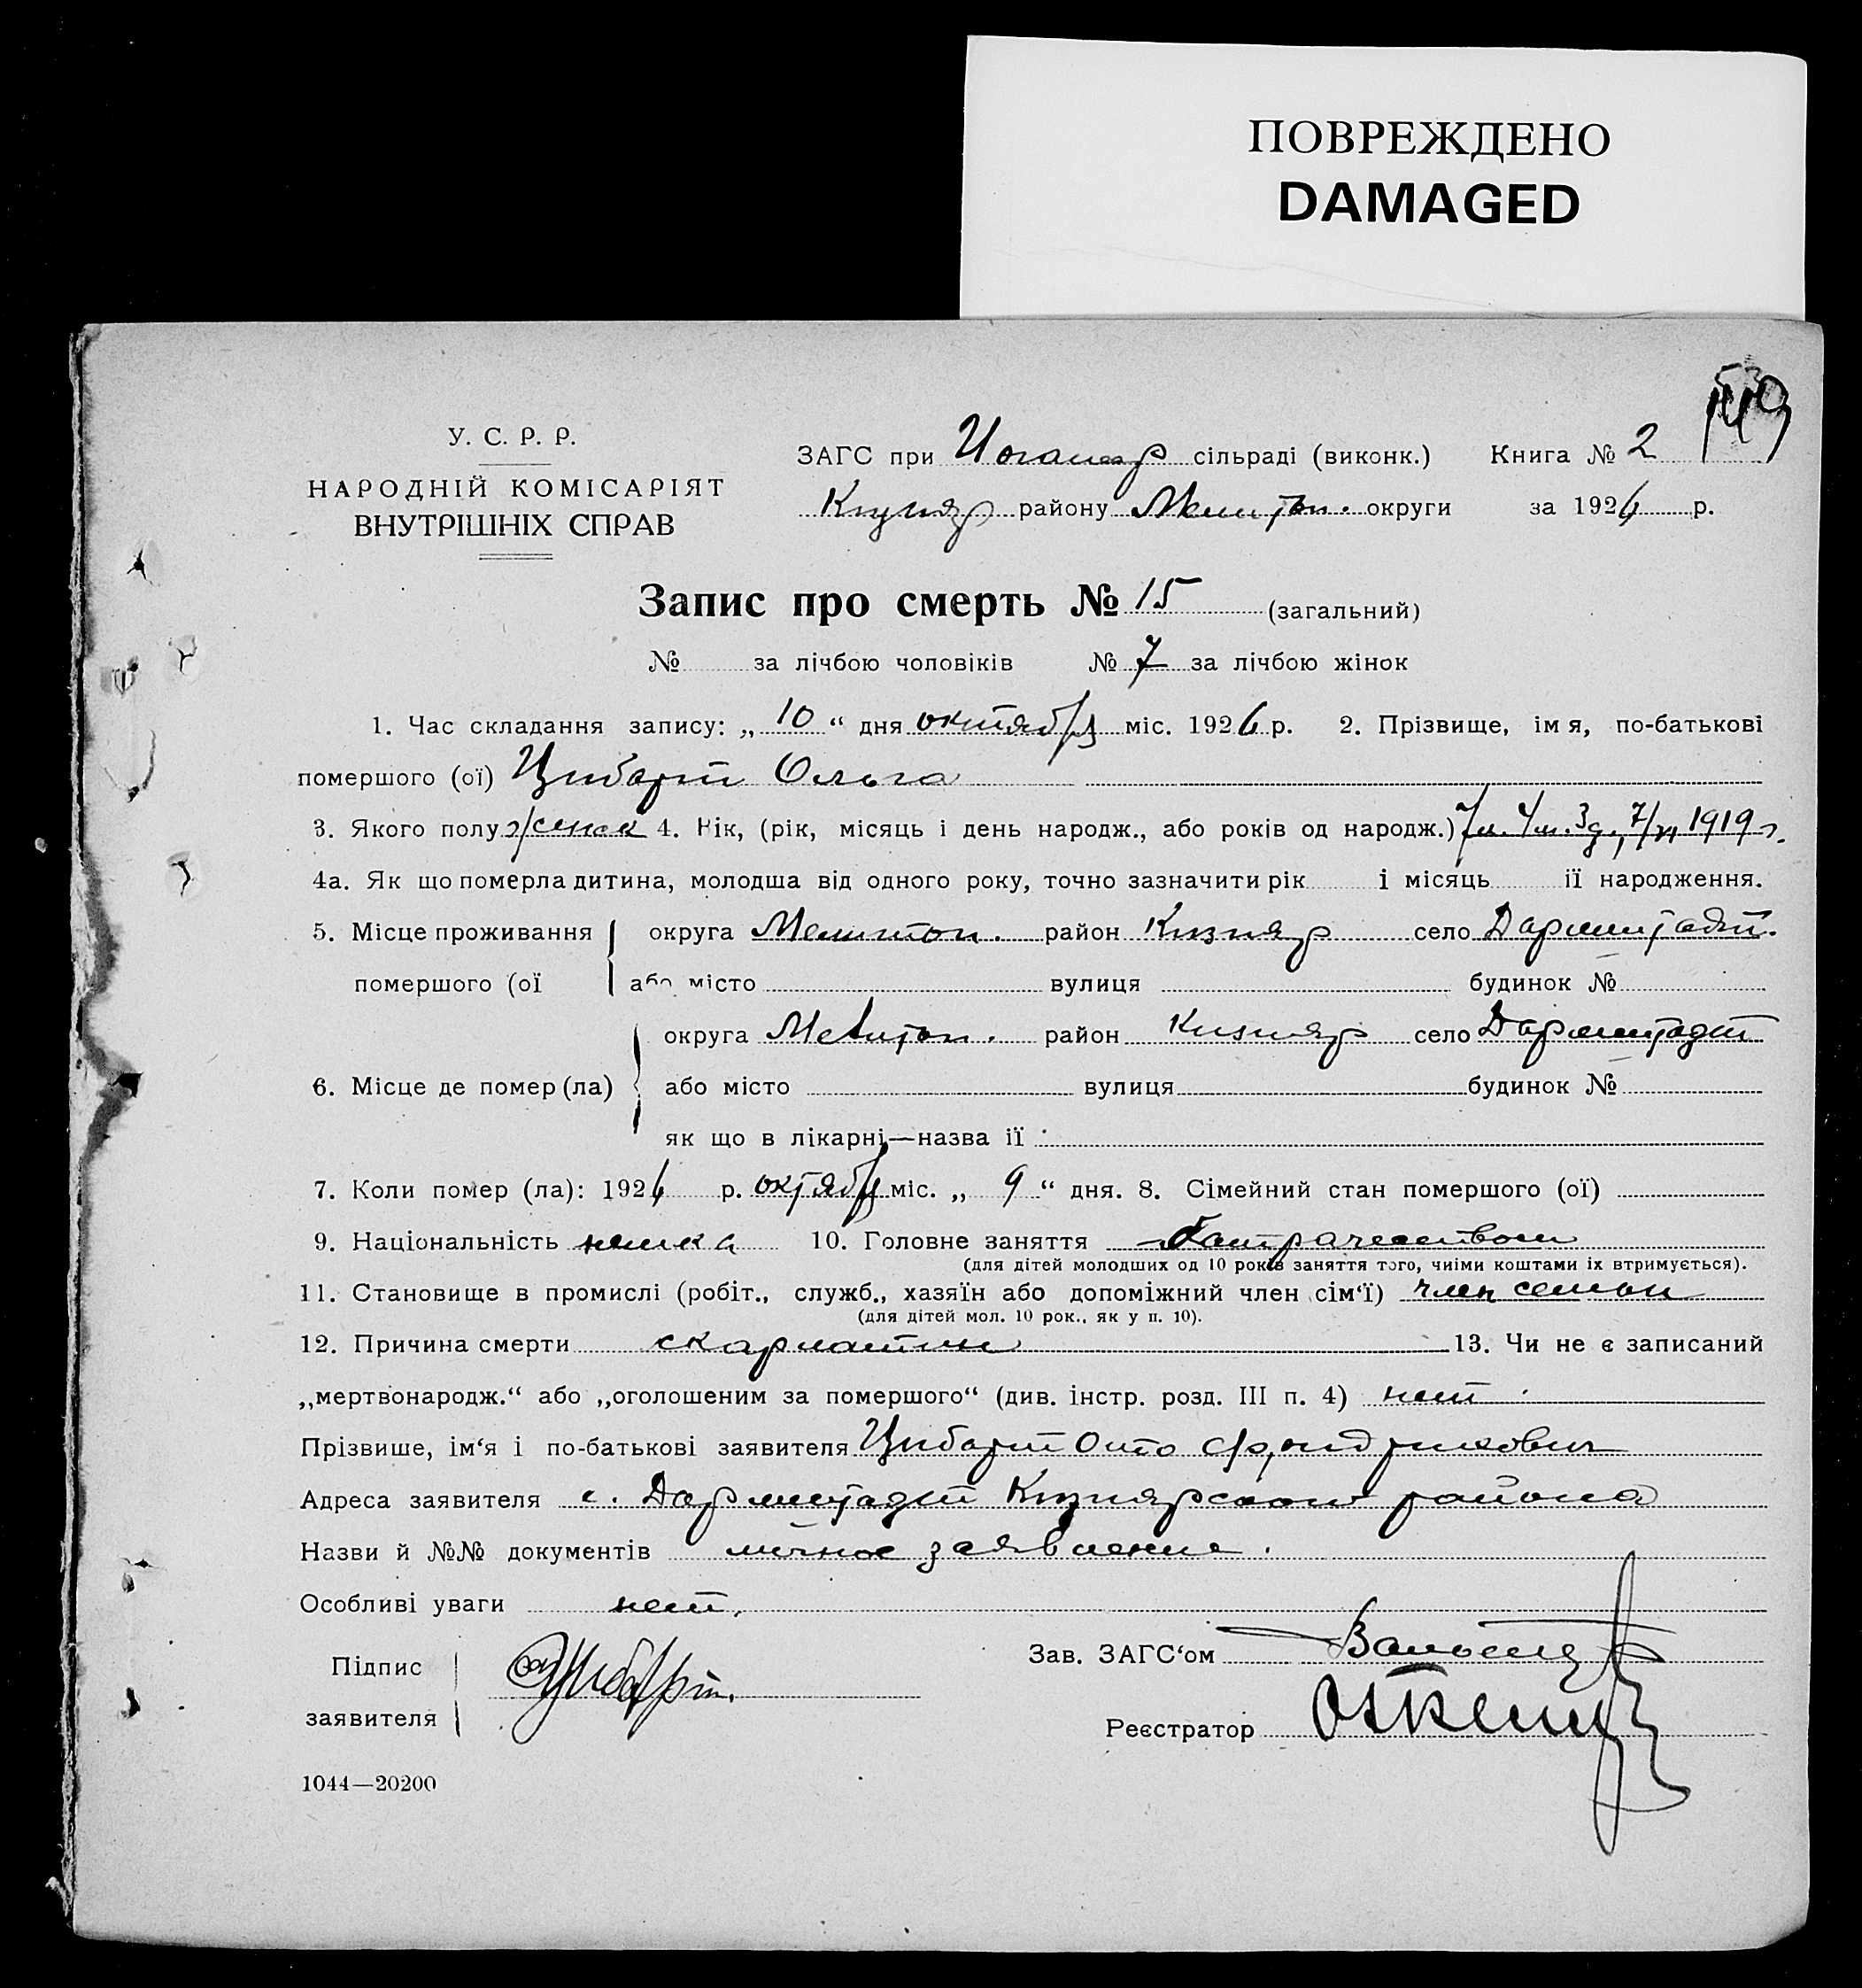 ПОВРЕЖДЕНО
DAMAGED
У. С. Р. Р.
НАРОДНІЙ КОМІСАРІЯТ
ВНУТРІШНІХ СПРАВ
ЗАГС при сільраді (виконк.) Книга № 2
району округи за 1926 р.
Запис про смерть № 15 (загальний)
№ за лічбою чоловіків № 7 за лічбою жінок
1. Час складання запису: „ 10 “ дня октября міс. 1926 р. 2. Прізвище, імя, по-батькові
помершого (ої) Цибарт Ольга
3. Якого полу женск 4. Вік, (рік, місяць і день народж., або років од народж.) 7л. 4м. 3д., 7/VI 1919 г.
4а. Як що померла дитина, молодша від одного року, точно зазначити рік і місяць її народження.
5. Місце проживання округа Мелитоп. район Кизияр село Дармштадт.
помершого (ої або місто вулиця будинок №
округа Мелитоп. район Кизияр село Дармштадт
6. Місце де помер (ла) або місто вулиця будинок №
як що в лікарні—назва її
7. Коли помер (ла): 1926 р. октября міс. „ 9 “ дня. 8. Сімейний стан помершого (ої)
9. Національність немка 10. Головне заняття батрачеством
(для дітей молодших од 10 років заняття того, чиїми коштами їх втримується).
11. Становище в промислі (робіт., служб., хазяїн або допоміжний член сім‘ї) член семьи
(для дітей мол. 10 рок., як у п. 10).
12. Причина смерти скарлатин 13. Чи не є записаний
„мертвонародж.“ або „оголошеним за помершого“ (див. інстр. розд. III п. 4) нет
Прізвише, ім‘я і по-батькові заявителя Цибарт Отто Фридрихович
Адреса заявителя с. Дармштадт Кизиярского района
Назви й №№ документів личное заявление.
Особливі уваги нет.
Підпис Цибарт. Зав. ЗАГС‘ом
заявителя
Реєстратор
1044—20200